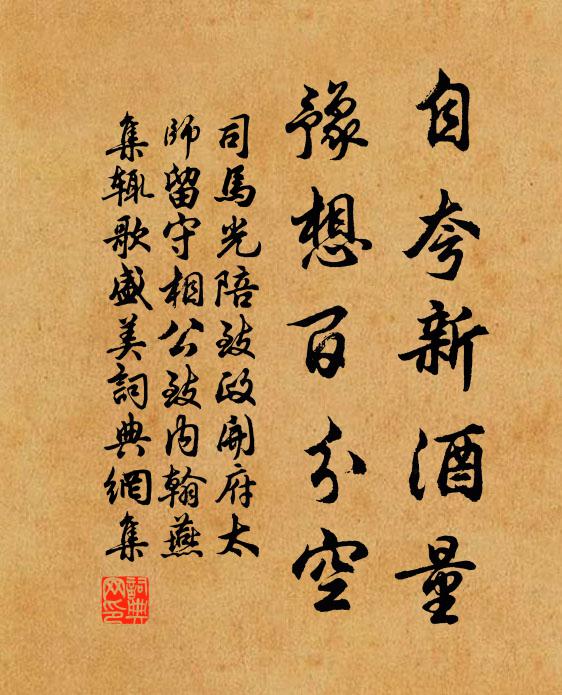 自夸新酒量
豫想百分空
司馬光陪致政開府太
師留守相公致內翰燕
集輒歌盛美詞典網集
詞典
网印